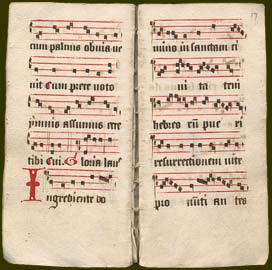 cum palmis obuia ue
nit Cum prece uoto
ymnis assumus ecce
tibi Cui. Gloria laus
Ingrediente do
17
mino in sanctam ci
ui ta tem
hebreo rum pue ri
resurrectionem uite
pro nunti an tes